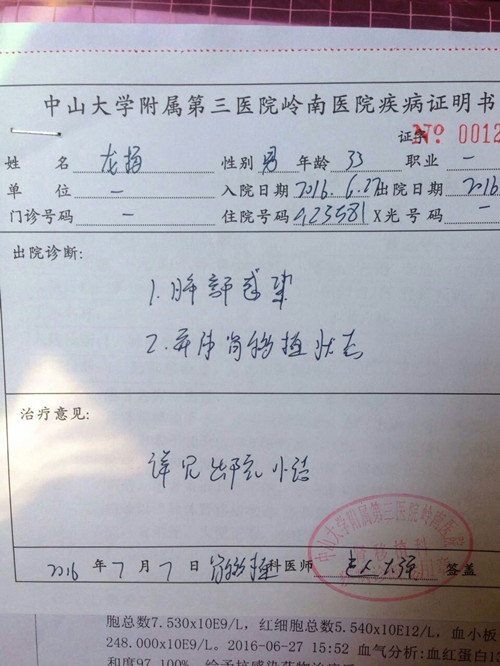 中山大学附属第三医院岭南医院疾病证明书
证字№ 0012
姓 名 龙扬 性别 男 年龄 33 职业 一
单 位 一 入院日期 2016.6.27 出院日期 2016.
门诊号码 一 住院号码 423581 X光号码 一
出院诊断:
1. 肺部感染
2. 异体肾移植状态
治疗意见:
详见出院小结
中山大学附属第三医院岭南医院
肾移植科
2016 年 7 月 7 日 肾移植科医师 签盖
胞总数7.530x10E9/L, 红细胞总数5.540x10E12/L, 血小板
248.000x10E9/L。2016-06-27 15:52 血气分析:血红蛋白1
和度97.100%